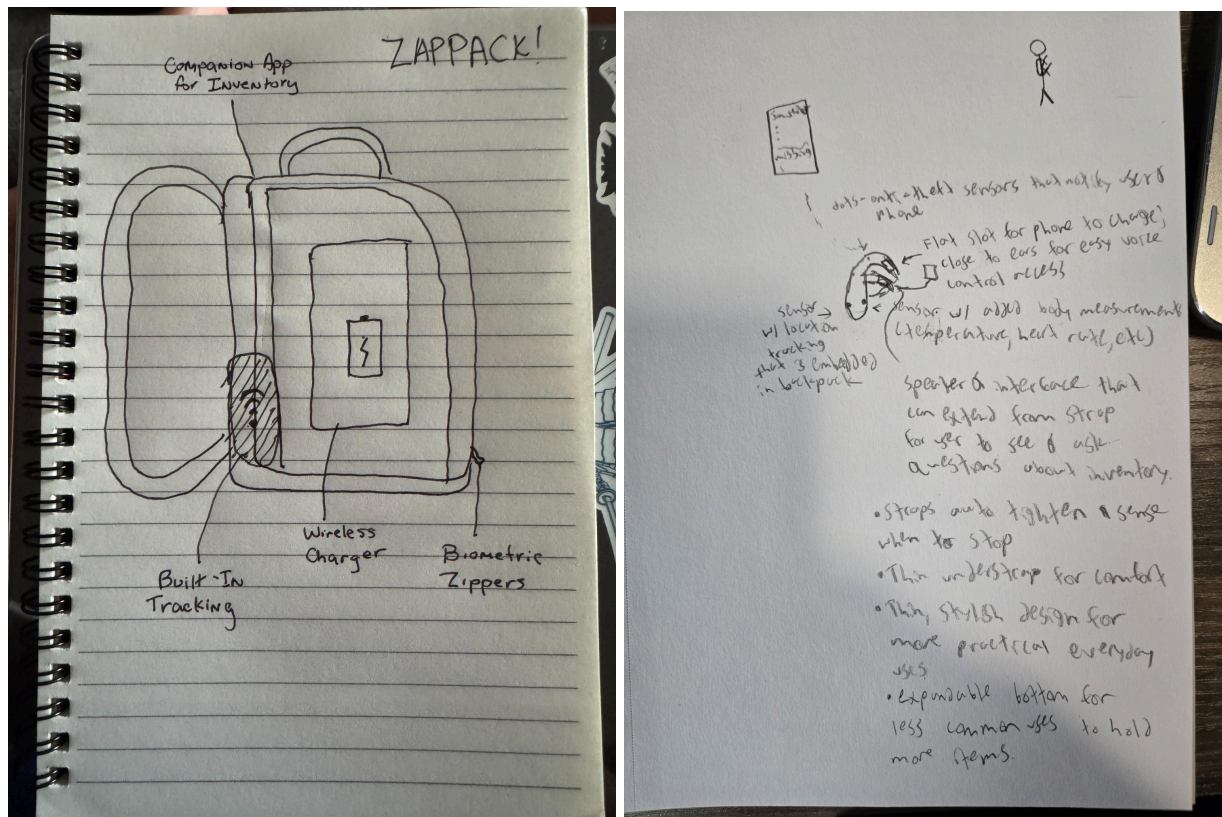 ZAPPACK!
Companion App
for Inventory
Wireless
Charger
Biometric
Zippers
Built-In
Tracking
missing
dots-anti-theft sensors that notify user's
phone
Flat slot for phone to charge;
close to ears for easy voice
control access
sensor
w/ location
tracking
that is embedded
in backpack
sensor w/ added body measurements
(temperature, heart rate, etc)
speater & interface that
can extend from strap
for user to see & ask
questions about inventory.
• Straps auto tighten & sense
when to stop
• Thin understrap for comfort
• Thin, stylish design for
more practical everyday
uses
• expandable bottom for
less common uses to hold
more items.